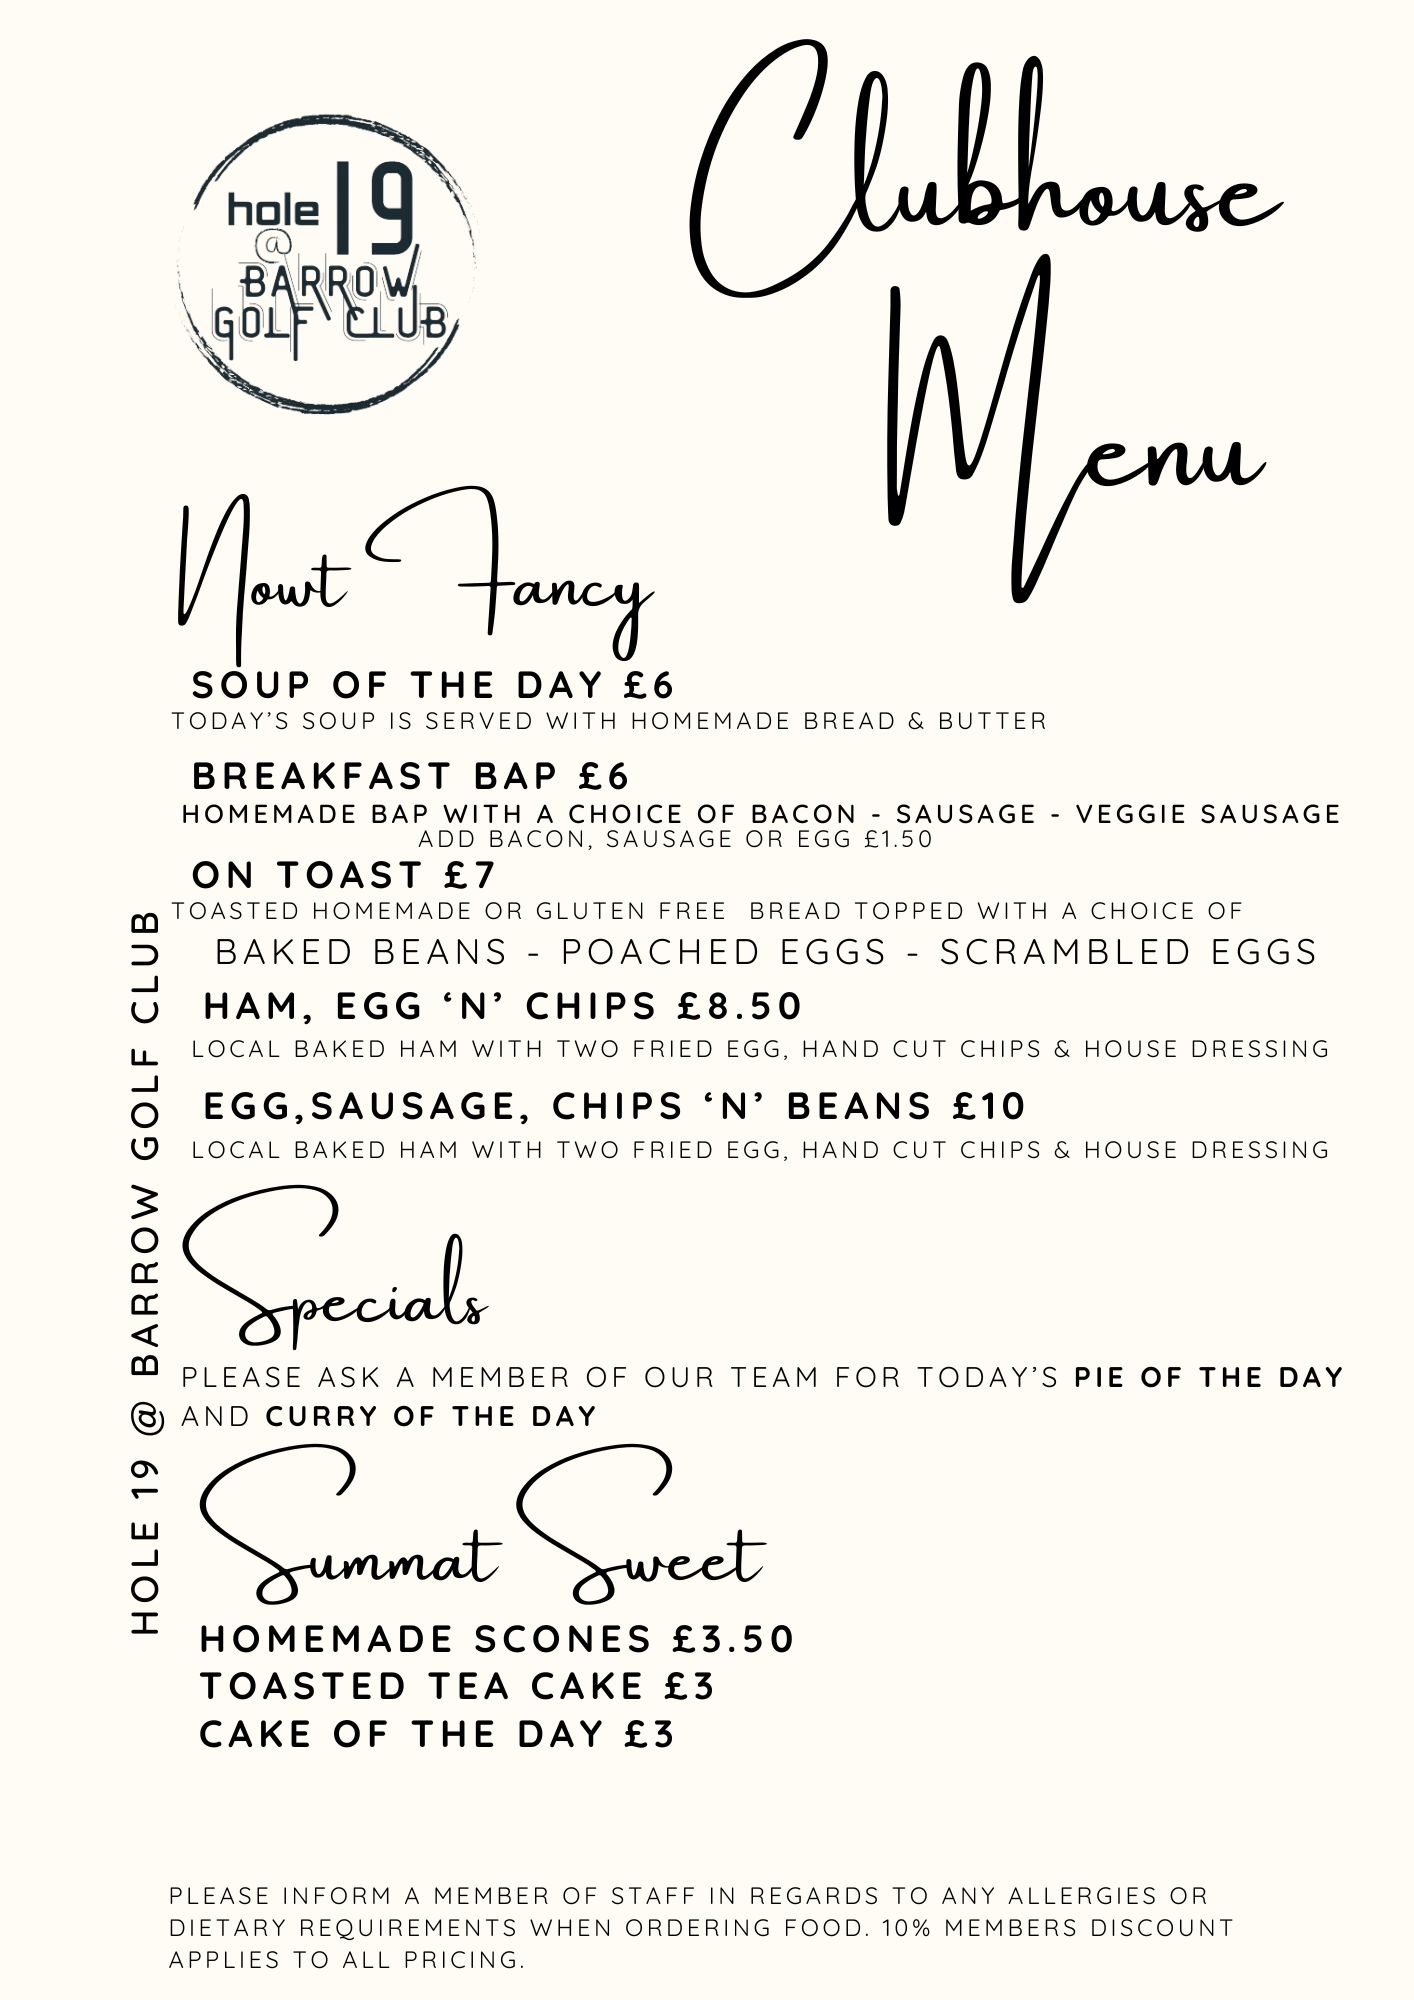 hole 19
@
BARROW
GOLF CLUB
Clubhouse
Menu
Nowt Fancy
SOUP OF THE DAY £6
TODAY’S SOUP IS SERVED WITH HOMEMADE BREAD & BUTTER
BREAKFAST BAP £6
HOMEMADE BAP WITH A CHOICE OF BACON - SAUSAGE - VEGGIE SAUSAGE
ADD BACON, SAUSAGE OR EGG £1.50
ON TOAST £7
TOASTED HOMEMADE OR GLUTEN FREE BREAD TOPPED WITH A CHOICE OF
BAKED BEANS - POACHED EGGS - SCRAMBLED EGGS
HAM, EGG ‘N’ CHIPS £8.50
LOCAL BAKED HAM WITH TWO FRIED EGG, HAND CUT CHIPS & HOUSE DRESSING
EGG,SAUSAGE, CHIPS ‘N’ BEANS £10
LOCAL BAKED HAM WITH TWO FRIED EGG, HAND CUT CHIPS & HOUSE DRESSING
HOLE 19 @ BARROW GOLF CLUB
Specials
PLEASE ASK A MEMBER OF OUR TEAM FOR TODAY’S PIE OF THE DAY
AND CURRY OF THE DAY
Summat Sweet
HOMEMADE SCONES £3.50
TOASTED TEA CAKE £3
CAKE OF THE DAY £3
PLEASE INFORM A MEMBER OF STAFF IN REGARDS TO ANY ALLERGIES OR
DIETARY REQUIREMENTS WHEN ORDERING FOOD. 10% MEMBERS DISCOUNT
APPLIES TO ALL PRICING.